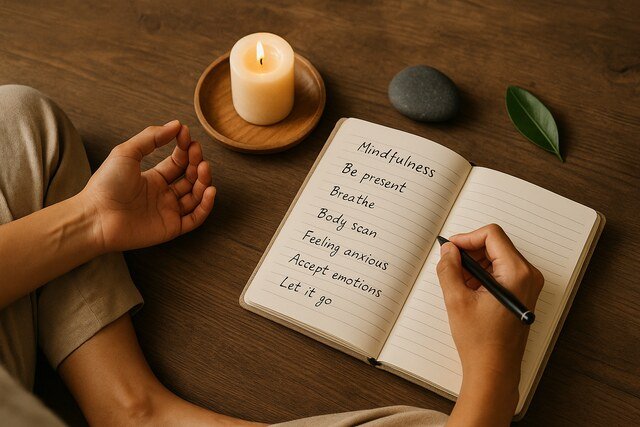 Mindfulness
Be present
Breathe
Body scan
Feeling anxious
Accept emotions
Let it go